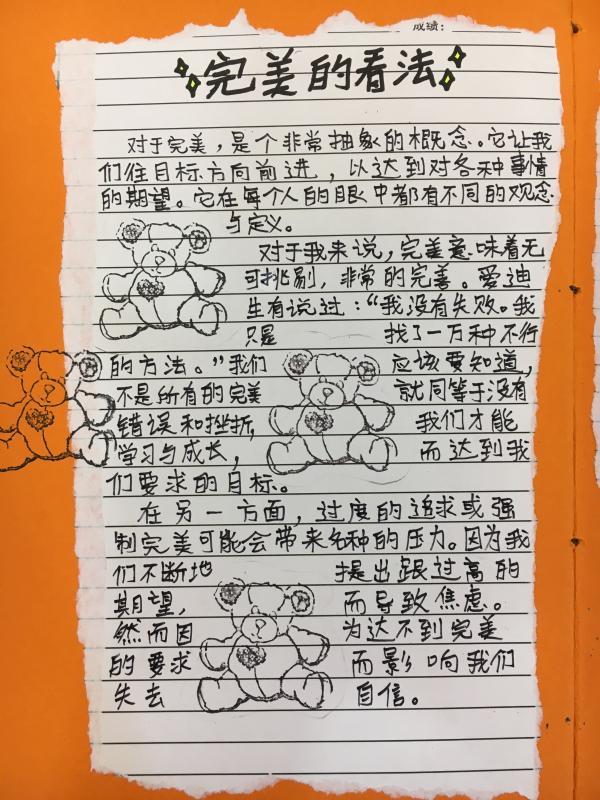 成绩：
完美的看法
对于完美，是个非常抽象的概念。它让我
们往目标方向前进，以达到对各种事情
的期望。它在每个人的眼中都有不同的观念
与定义。
对于我来说，完美意味着无
可挑剔，非常的完善。爱迪
生有说过：“我没有失败。我
只是 找了一万种不行
的方法。”我们 应该要知道，
不是所有的完美 就同等于没有
错误和挫折， 我们才能
学习与成长， 而达到我
们要求的目标。
在另一方面，过度的追求或强
制完美可能会带来各种的压力。因为我
们不断地 提出跟过高的
期望， 而导致焦虑。
然而因 为达不到完美
的要求 而影响我们
失去 自信。